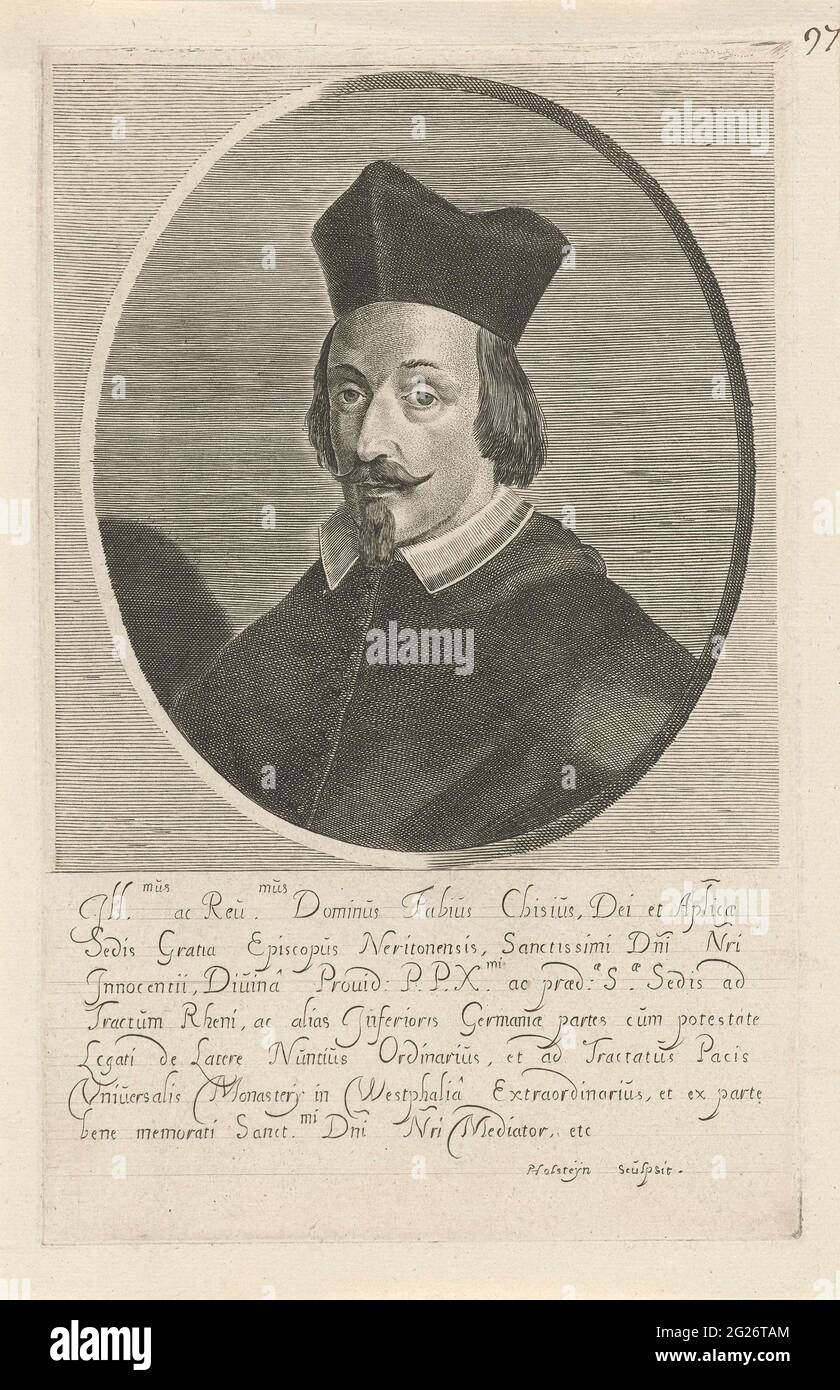 97
Ill.mũs ac Reũ.mũs Dominũs Fabiũs Chisiũs, Dei et Aplĩcæ
Sedis Gratia Episcopũs Neritonensis, Sanctissimi Dñi Nr̃i
Innocentii, Diũinâ Proũid: P.P.X.mi ac præd.æ S.æ Sedis ad
Tractũm Rheni, ac alias Inferioris Germaniæ partes cũm potestate
Legati de Latere Nũntiũs Ordinariũs, et ad Tractatũs Pacis
Vniũersalis Monasterij in Westphaliâ Extraordinariũs, et ex parte
bene memorati Sanct.mi Dñi Nr̃i Mediator, etc
PHolsteÿn scũlpsit.
alamy
alamy
alamy
Image ID: 2G26TAM
www.alamy.com